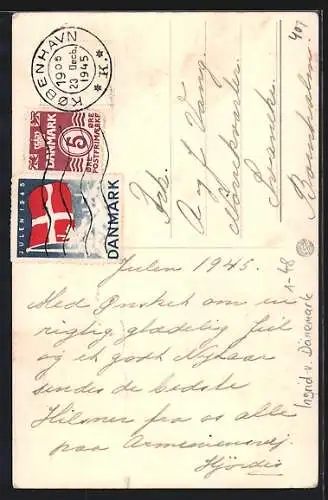 KØBENHAVN
19 05
23 Decb.
1945
* K. *
DANMARK
5
ØRE ØRE
POSTFRIMÆRKE
JULEN 1945
DANMARK
407
Frk.
A og J Vang.
Svaneke.
Bornholm.
Julen 1945.
Med Ønsket om en
rigtig glædelig Jul
og et godt Nytaar
sendes de bedste
Hilsner fra os alle
paa Armeniensvej.
Hjørdis
1-48
Ingrid v. Dänemark